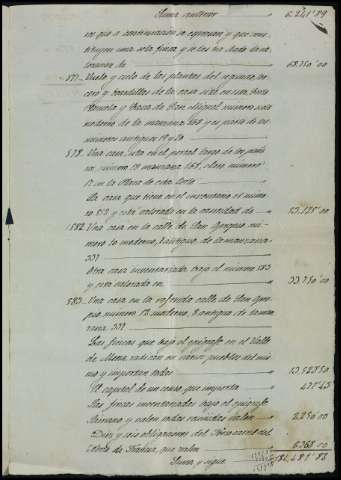 Suma anterior 6.241'89
ros que a continuacion se expresan y que cons-
tituyen una sola finca y se les ha dado de va-
loracion de 68.750'00
571. Vuelo y suelo de las plantas del
y boardillas de la casa sita en esta Corte
y Plaza de San Miguel numero seis
moderno de la manzana 168 y es parte de los
numeros antiguos 19 y 20
578. Una casa, sita en el portal
numero 19 manzana 168, ahora numero
12, en la Plaza de esta Corte
La casa que tiene en el inventario el nume-
ro y esta valorada en la cantidad de 53.125'00
582. Una casa en la calle de San Gregorio nu-
mero 10 moderno, antiguo, de la manzana
331
Otra casa inventariada bajo el numero 583
y esta valorada en 33.750'00
583. Una casa en la referida calle de San Gre-
gorio numero 12 moderno, 8 antiguo de la man-
zana 331
Las fincas que bajo el epigrafe en el Valle
de Mena, radican en varios pueblos del mis-
mo y importan todas 13.528'50
El capital de un censo que importa 475'45
Las fincas inventariadas bajo el epigrafe
y valen todas reunidas valen 2.250'00
Diez y seis obligaciones del ferrocarril del
Norte de que valen 6.368'00
Suma y sigue